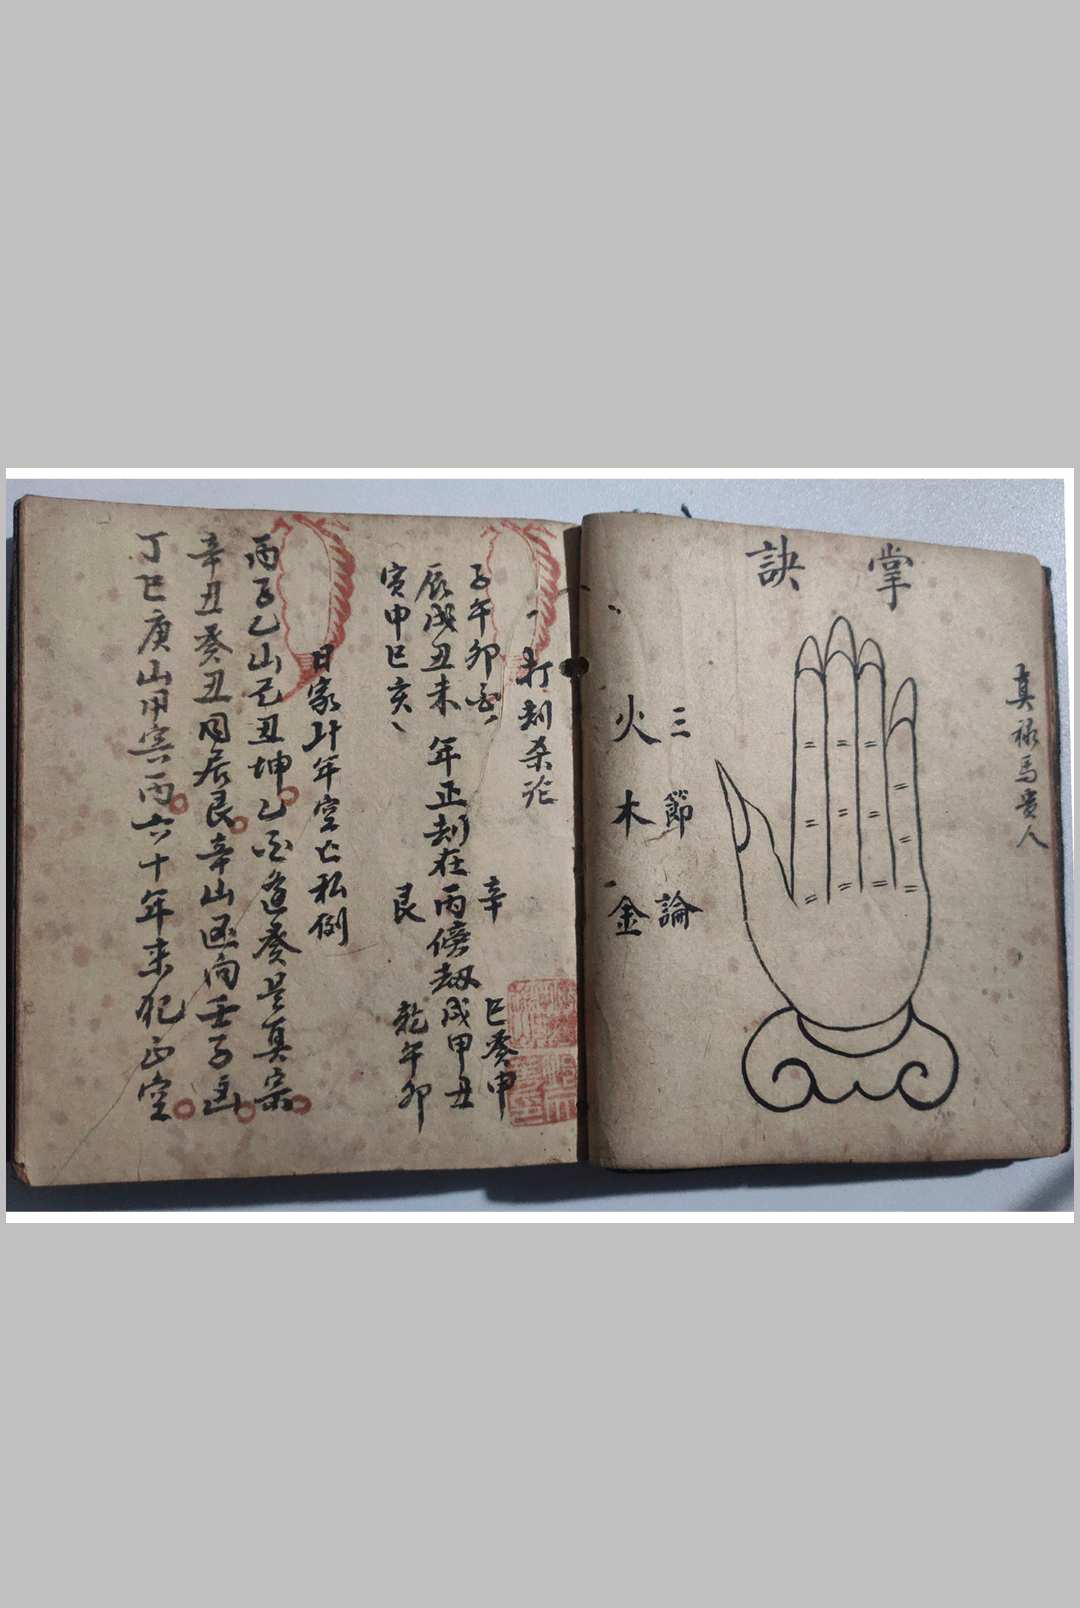 真祿馬貴人
掌訣
三節論
火木金
一打刼杀论
子午卯酉 辛 巳癸申
辰戌丑未 年正刼在丙傍刼戌甲丑
寅申巳亥 艮 乾午卯
日家斗年空亡私例
丙子乙山己丑坤 乙酉逢癸是真宗
辛丑癸丑同居艮 辛山向壬子
丁巳庚山用寅丙 六十年来犯正空